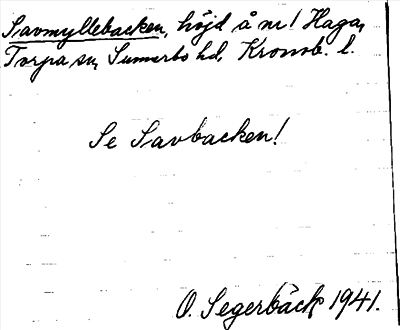 Savmyllebacken, höjd å nr 1 Haga,
Torpa sn, Sunnerbo hd, Kronob. l.
Se Savbacken!
O. Segerbäck 1941.